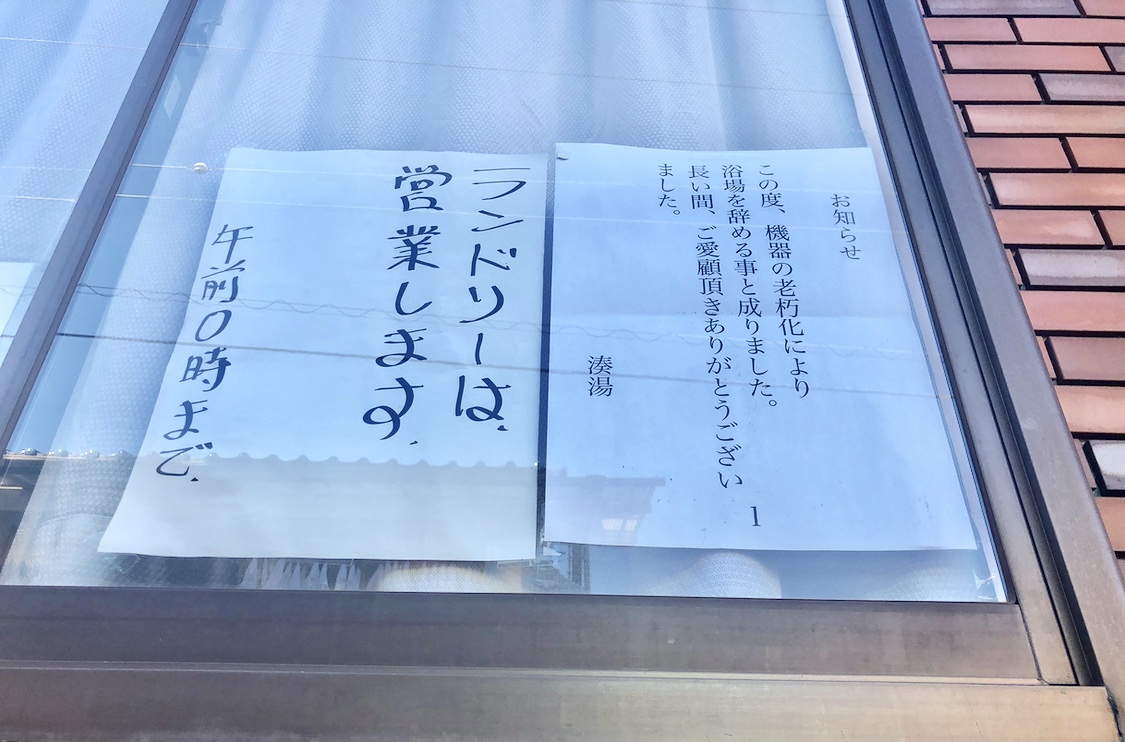 お知らせ
この度、機器の老朽化により
浴場を辞める事と成りました。
長い間、ご愛顧頂きありがとうござい
ました。
湊湯
1
ランドリーは、
営業します、
午前0時まで、